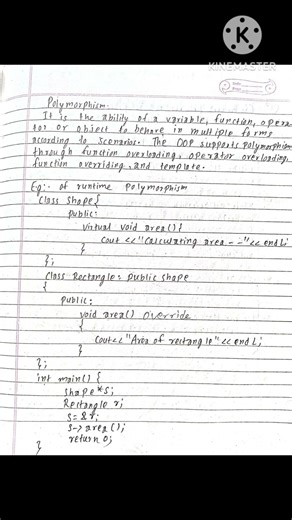 KINEMASTER
Polymorphism.
It is the ability of a variable, function, opera-
tor or object to behave in multiple forms
according to scenarios. The OOP supports polymorphism
through function overloading, operator overloading,
function overriding, and template.
Eg:- of runtime polymorphism
class Shape{
public:
virtual void area(){
cout <<"Calculating area - -"<< endl;
}
};
class Rectangle: public shape
{
public:
void area() override
{
cout<<"Area of rectangle"<< endL;
}
};
int main() {
shape *s;
Rectangle r;
s= &r;
s-> area();
return 0;
}